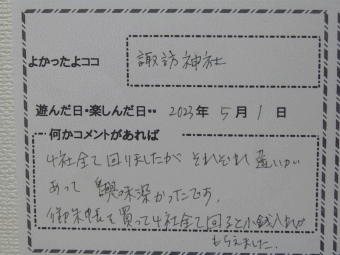 よかったよココ 諏訪神社
遊んだ日・楽しんだ日・・ 2023年 5月 1日
何かコメントがあれば
4社全て回りましたが それぞれ違いが
あって 興味深かったです。
御朱印帳を買って4社全て回ると小銭入れが
もらえました。